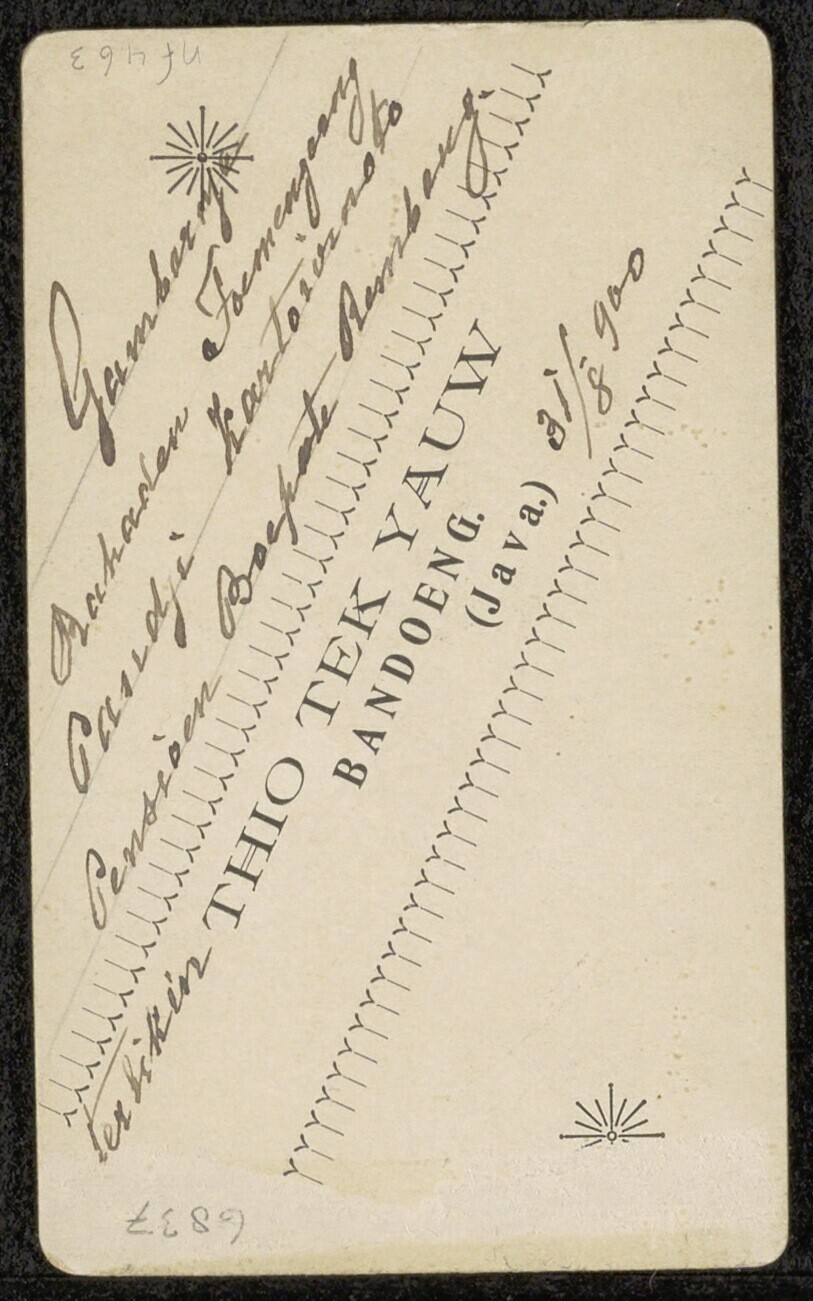 nf 463
Gambarnja
Rahaden Toemengoeng
Pandji Kartowinoto
Pensioen Boepati Rembang.
terbikin THIO TEK YAUW
BANDOENG.
(Java.) 31/8 900
6837